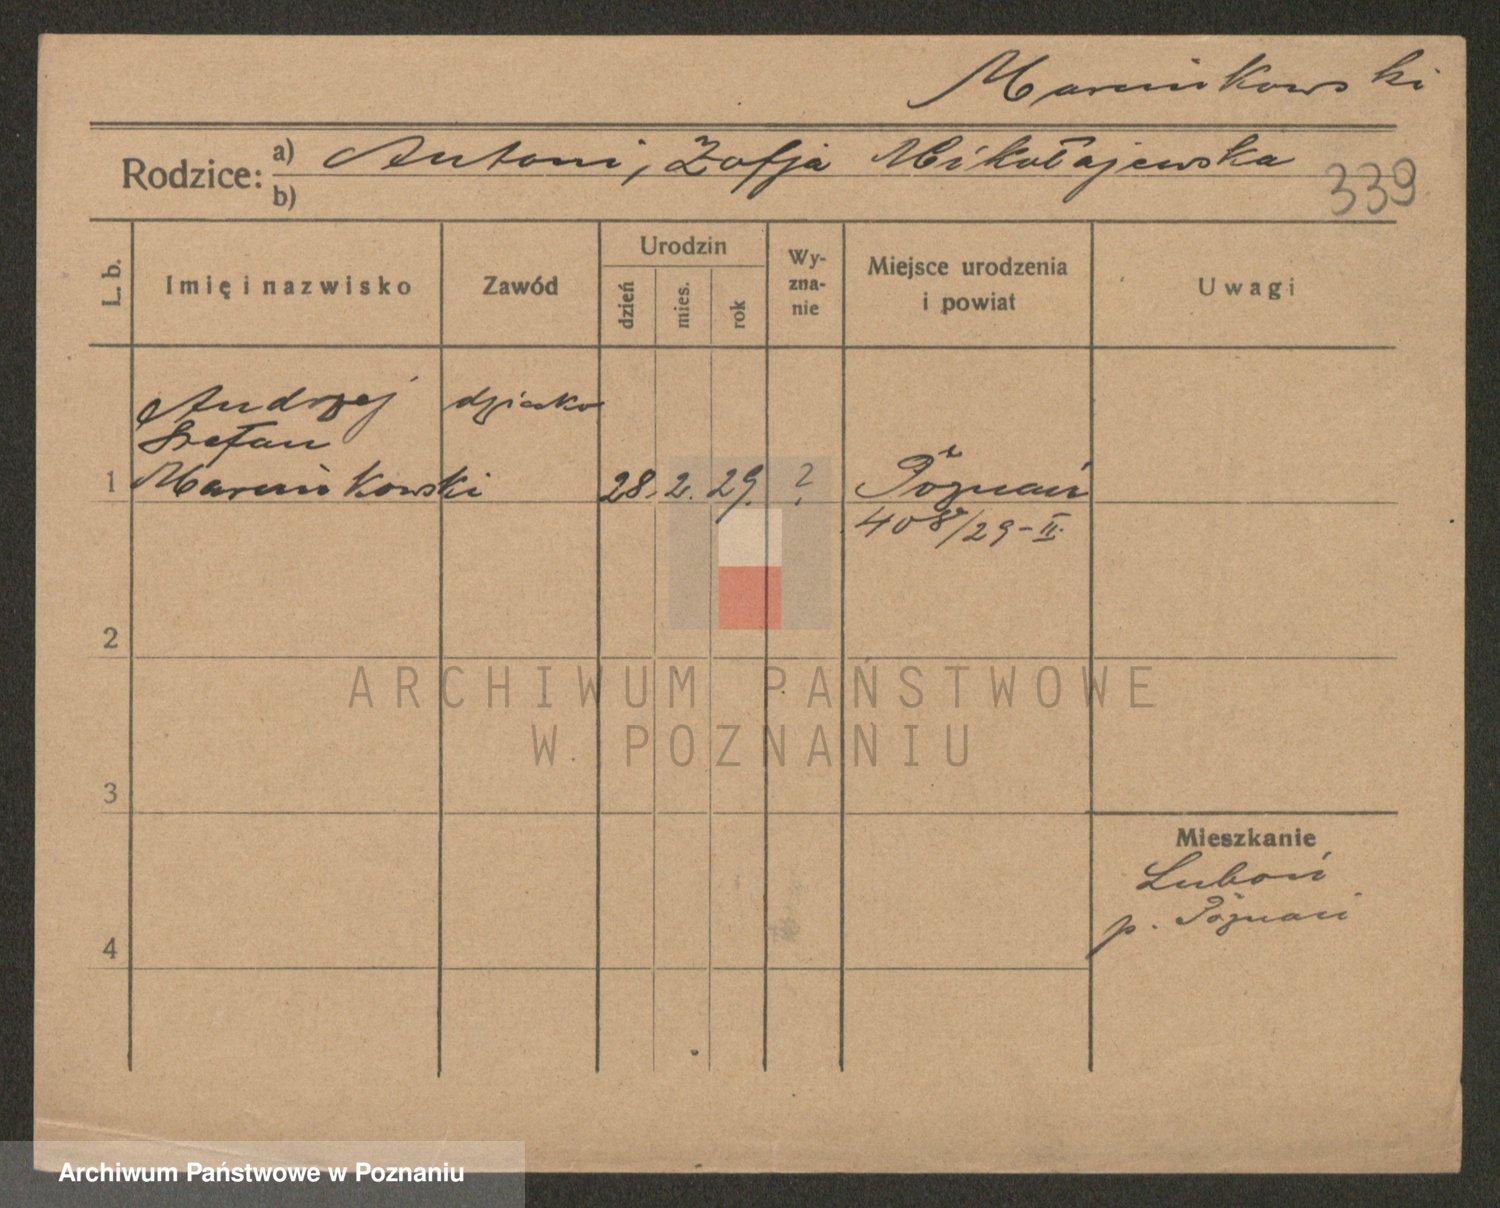 Marcinkowski
Rodzice: a) Antoni, Zofja Mikołajewska
b)
339
L. b.
Imię i nazwisko
Zawód
Urodzin
dzień
mies.
rok
Wy-
zna-
nie
Miejsce urodzenia
i powiat
Uwagi
Andrzej dziecko
Stefan
1 Marcinkowski 28. 2. 29. ? Poznań
408/29-II.
2
ARCHIWUM PAŃSTWOWE
W POZNANIU
3
Mieszkanie
Luboń
p. Poznań
4
Archiwum Państwowe w Poznaniu